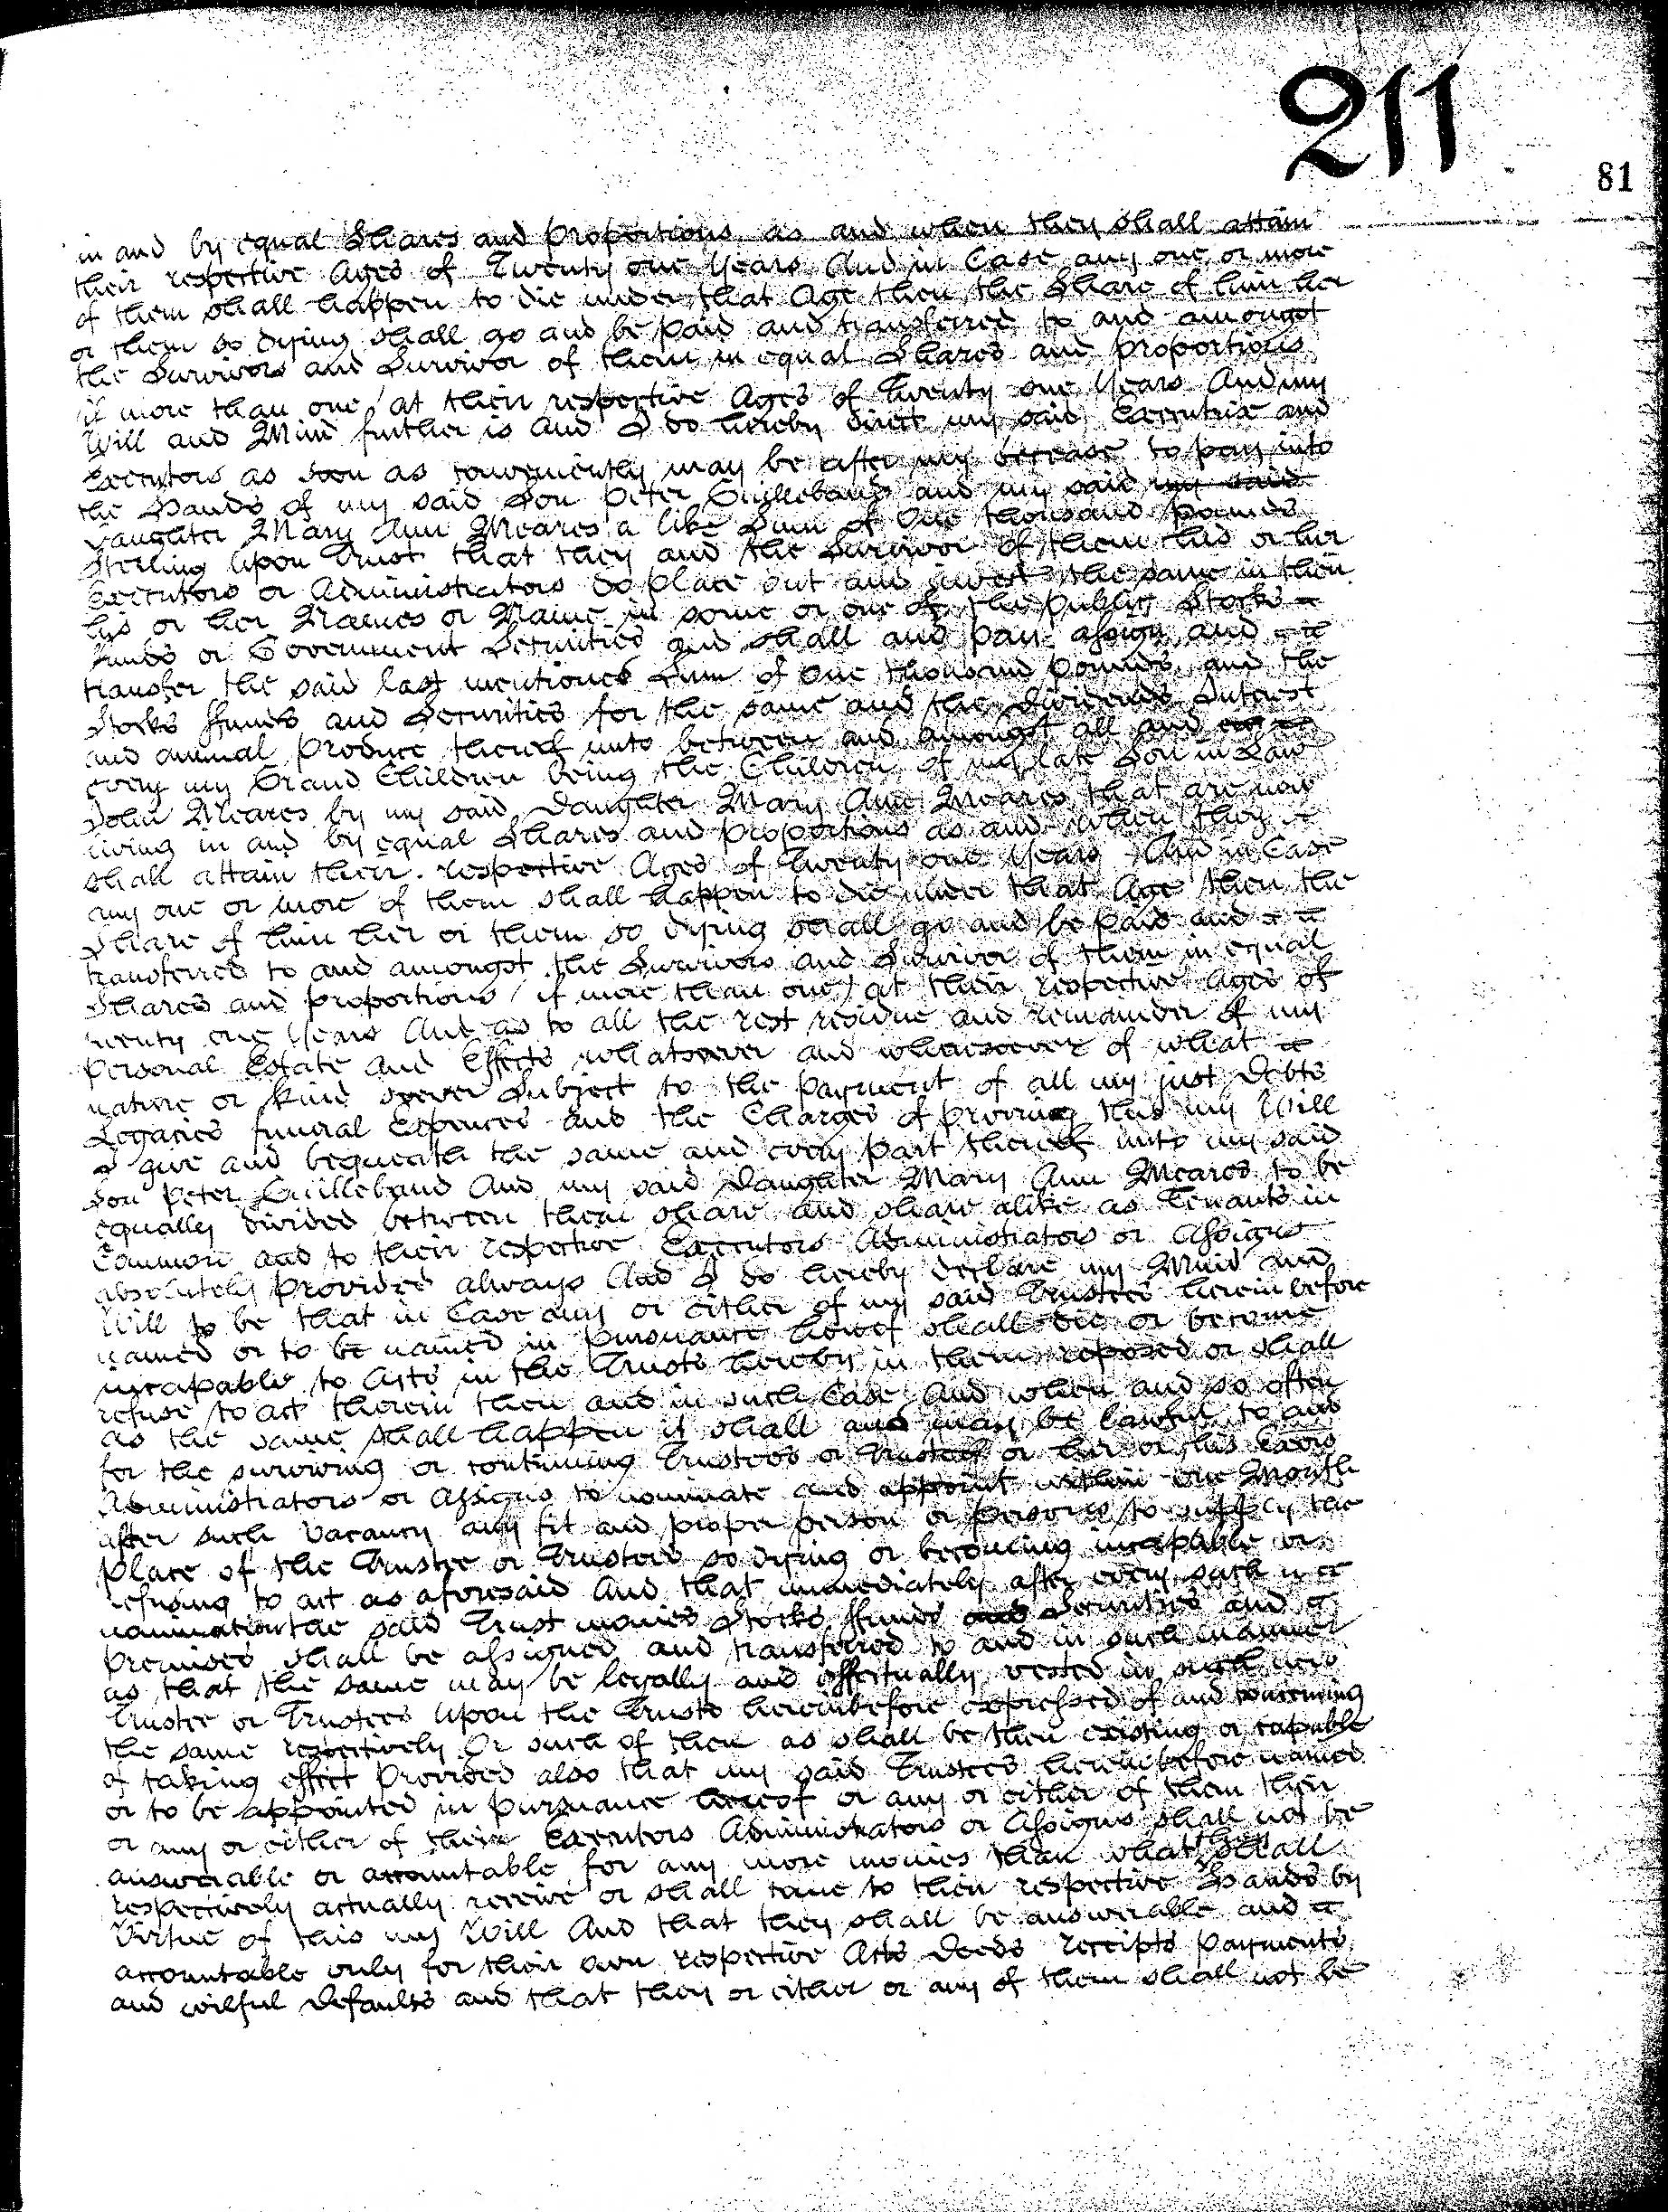 211
81
in and by equal Shares and proportions as and when they shall attain
their respective Ages of Twenty one Years And in Case any one or more
of them shall happen to die under that Age then the Share of him her
or them so dying shall go and be paid and transferred to and amongst
the Survivors and Survivor of them in equal Shares and proportions
if more than one / at their respective Ages of Twenty one Years And my
Will and Mind further is And I do hereby direct my said Executrix and
Executors as soon as conveniently may be after my decease to pay into
the Hands of my said Son Peter Guillebaud and my said my said
Daughter Mary Ann Meares a like Sum of One thousand pounds
Sterling Upon Trust that they and the Survivor of them his or her
Executors or Administrators do place out and invest the same in their
his or her Names or Name in some or one of the public Stocks
Funds or Government Securities and shall and pay assign and
transfer the said last mentioned Sum of One thousand pounds and the
Stocks ffunds and Securities for the same and the Dividends Interest
and annual produce thereof unto between and amongst all and
every my Grand Children being the Children of my late Son in Law
John Meares by my said Daughter Mary Ann Meares that are now
living in and by equal Shares and proportions as and when they
shall attain their respective Ages of Twenty one Years And in Case
any one or more of them shall happen to die under that Age then the
Share of him her or them so dying shall go and be paid and
transferred to and amongst the Survivors and Survivor of them in equal
Shares and proportions / if more than one / at their respective Ages of
twenty one Years And as to all the rest residue and remainder of my
personal Estate and Effects whatsoever and wheresoever of what
nature or kind soever Subject to the payment of all my just Debts
Legacies funeral Expences and the Charges of proving this my Will
I give and bequeath the same and every part thereof unto my said
Son Peter Guillebaud And my said Daughter Mary Ann Meares to be
equally divided between them share and share alike as Tenants in
Common and to their respective Executors Administrators or Assigns
absolutely provided always And I do hereby declare my Mind and
Will to be that in Case any or either of my said Trustees herein before
named or to be named in pursuance hereof shall die or become
incapable to Acts in the Trusts hereby in them reposed or shall
refuse to act therein then and in such Case And when and so often
as the same shall happen it shall and may be lawful to and
for the surviving or continuing Trustees or Trustee or her or his Exors
Administrators or Assigns to nominate and appoint within one Month
after such Vacancy any fit and proper person or persons to supply the
place of the Trustee or Trustees so dying or becoming incapable or
refusing to act as aforesaid And that immediately after every such
nomination the said Trust monies Stocks ffunds and Securities and
premises shall be assigned and transferred to and in such manner
as that the same may be legally and effectually vested in such new
Trustee or Trustees Upon the Trusts hereinbefore expressed of and concerning
the same respectively Or such of them as shall be then existing or capable
of taking effect Provided also that my said Trustees hereinbefore named
or to be appointed in pursuance hereof or any or either of them their
or any or either of their Executors Administrators or Assigns shall not be
answerable or accountable for any more monies than what they shall
respectively actually receive or shall come to their respective Hands by
Virtue of this my Will And that they shall be answerable and
accountable only for their own respective Acts Deeds receipts payments
and wilful Defaults and that they or either or any of them shall not be